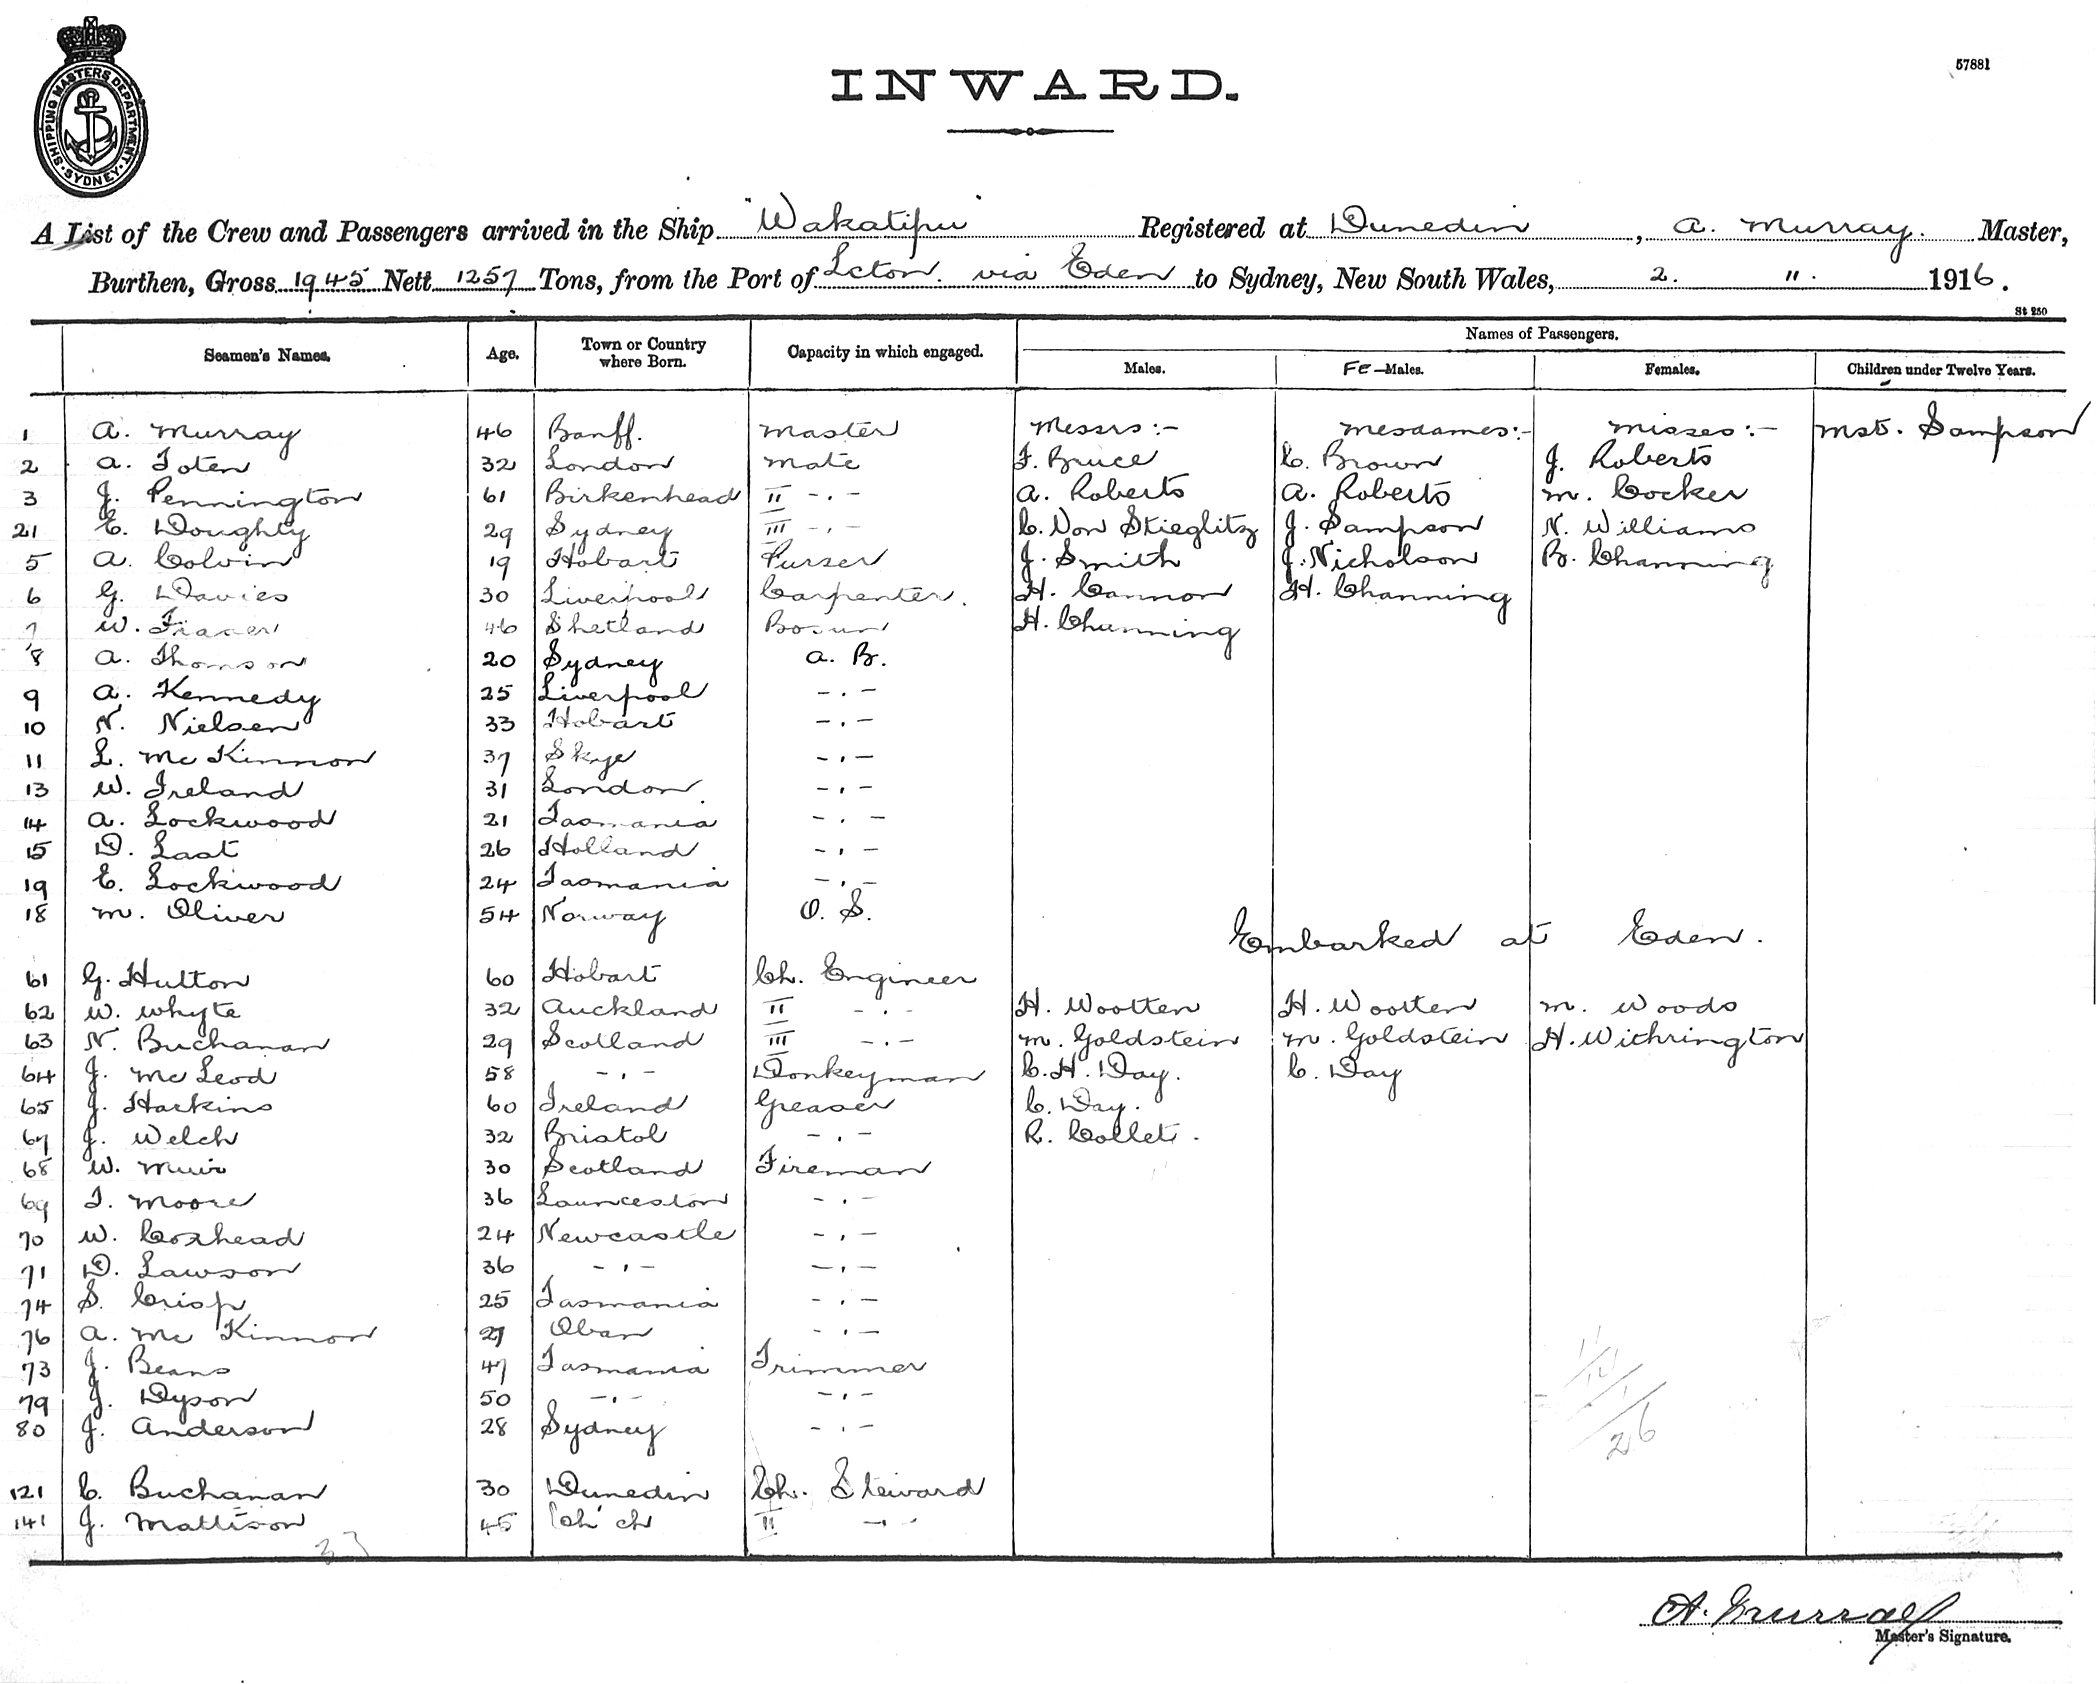 SHIPPING MASTERS DEPARTMENT · SYDNEY ·
INWARD.
57881
A List of the Crew and Passengers arrived in the Ship "Wakatipu" Registered at Dunedin, A. Murray. Master,
Burthen, Gross 1945 Nett 1257 Tons, from the Port of Lcton. via Eden to Sydney, New South Wales, 2. 11. 1916.
St 250
Seamen's Names. Age. Town or Country where Born. Capacity in which engaged. Names of Passengers.
Males. FE-Males. Females. Children under Twelve Years.
1 A. Murray 46 Banff. Master Messrs:- Mesdames:- Misses:- Mst. Sampson
2 A. Toten 32 London Mate F. Bruce C. Brown J. Roberts
3 J. Pennington 61 Birkenhead II -.- A. Roberts A. Roberts M. Cocker
21 E. Doughty 29 Sydney III -.- C. Von Stieglitz J. Sampson N. Williams
5 A. Colvin 19 Hobart Purser J. Smith J. Nicholson B. Channing
6 G. Davies 30 Liverpool Carpenter. H. Cannon H. Channing
7 W. Fraser 46 Shetland Bosun H. Channing
8 A. Thomson 20 Sydney A. B.
9 A. Kennedy 25 Liverpool -.-
10 N. Nielsen 33 Hobart -.-
11 L. McKinnon 37 Skye -.-
13 W. Ireland 31 London -.-
14 A. Lockwood 21 Tasmania -.-
15 D. Laat 26 Holland -.-
19 E. Lockwood 24 Tasmania -.-
18 M. Oliver 54 Norway O. S.
Embarked at Eden.
61 G. Hutton 60 Hobart Ch. Engineer
62 W. Whyte 32 Auckland II -.- H. Wootten H. Wootten M. Woods
63 N. Buchanan 29 Scotland III -.- M. Goldstein M. Goldstein H. Withrington
64 J. McLeod 58 -.- Donkeyman C. H. Day. C. Day
65 J. Harkins 60 Ireland Greaser C. Day.
67 J. Welch 32 Bristol -.- R. Collet.
68 W. Muir 30 Scotland Fireman
69 T. Moore 36 Launceston -.-
70 W. Coxhead 24 Newcastle -.-
71 D. Lawson 36 -.- -.-
74 S. Crisp 25 Tasmania -.-
76 A. McKinnon 27 Oban -.-
73 J. Beans 47 Tasmania Trimmer
79 J. Dyson 50 -.- -.-
80 J. Anderson 28 Sydney -.-
26
121 C. Buchanan 30 Dunedin Ch. Steward
141 J. Mattison 45 Ch'ch II -.-
33
A. Murray
Master's Signature.